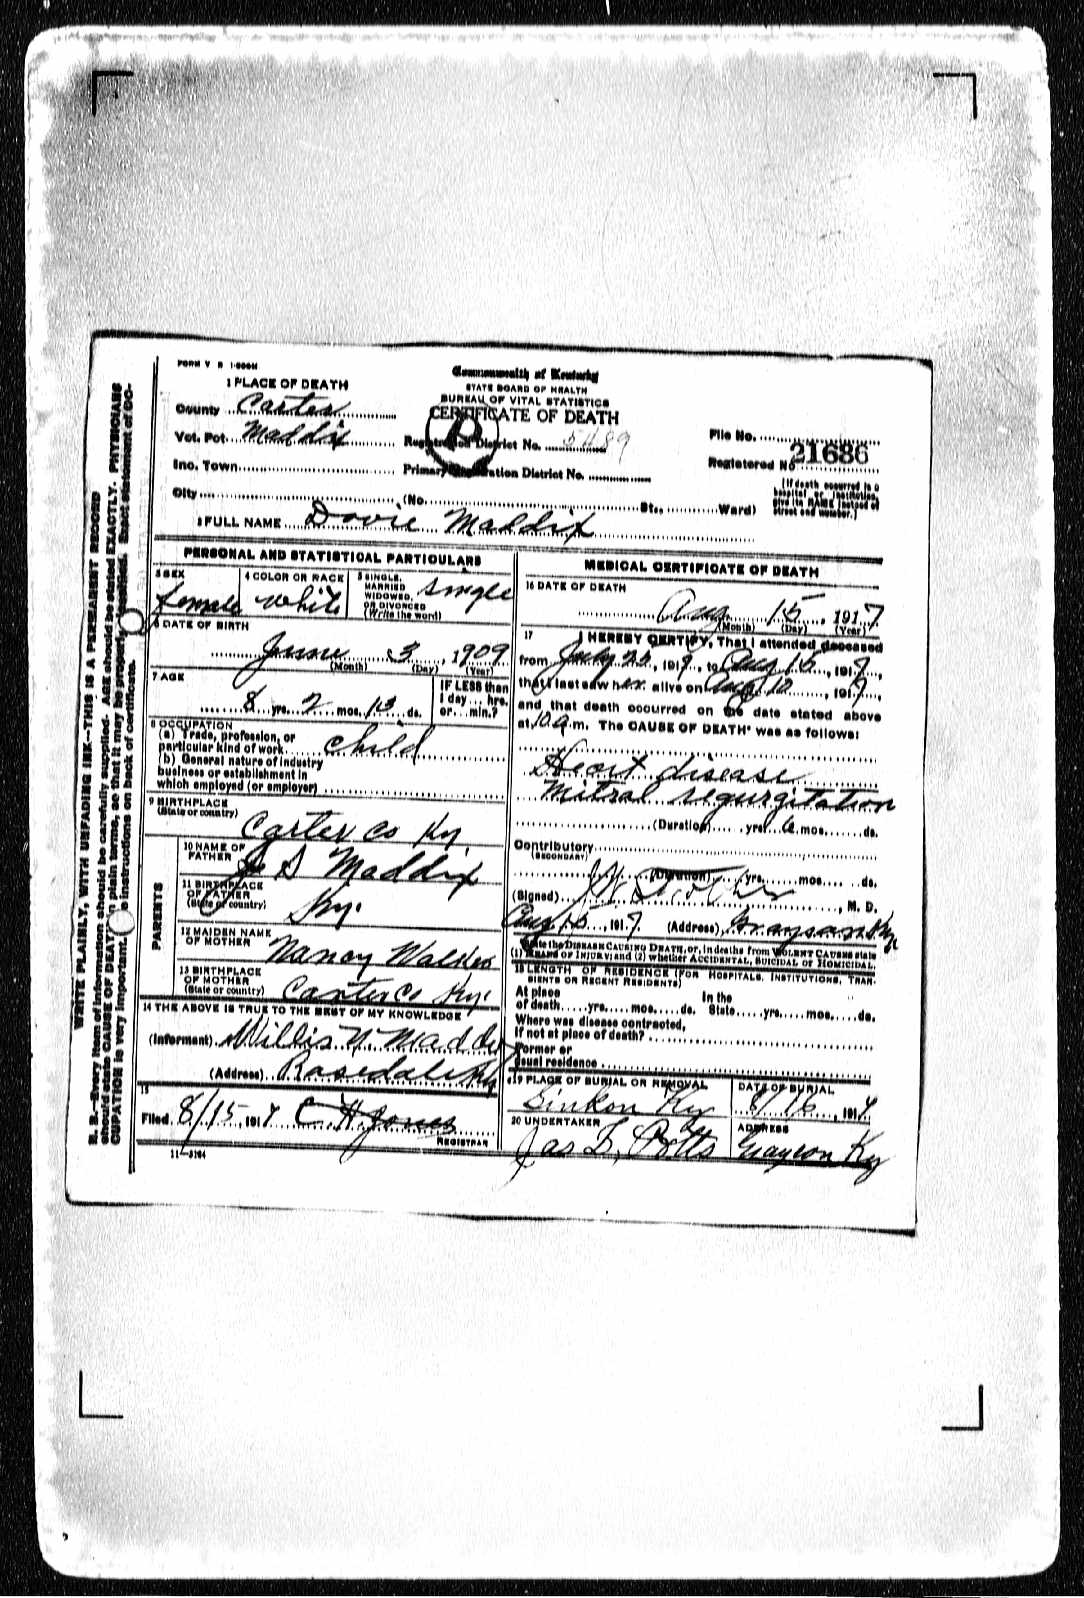 FORM V S 1-500M
Commonwealth of Kentucky
STATE BOARD OF HEALTH
BUREAU OF VITAL STATISTICS
CERTIFICATE OF DEATH
1 PLACE OF DEATH
County Carter
Vot. Pct. Maddix
Registration District No. 5489
File No.
Inc. Town
Primary Registration District No.
Registered No. 21686
City (No. St., Ward)
(If death occurred in a hospital or institution, give its NAME instead of street and number.)
2 FULL NAME Dovie Maddix
PERSONAL AND STATISTICAL PARTICULARS
3 SEX
female
4 COLOR OR RACE
White
5 SINGLE, MARRIED WIDOWED, OR DIVORCED (Write the word)
Single
6 DATE OF BIRTH
June 3, 1909
(Month) (Day) (Year)
7 AGE
8 yrs. 2 mos. 13 ds.
IF LESS than 1 day... hrs. or... min.?
8 OCCUPATION
(a) Trade, profession, or particular kind of work child
(b) General nature of industry
business or establishment in
which employed (or employer)
9 BIRTHPLACE
(State or country)
Carter Co Ky.
PARENTS
10 NAME OF FATHER
J S Maddix
11 BIRTHPLACE OF FATHER (State or country)
Ky.
12 MAIDEN NAME OF MOTHER
Nancy
13 BIRTHPLACE OF MOTHER (State or country)
Carter Co Ky.
14 THE ABOVE IS TRUE TO THE BEST OF MY KNOWLEDGE
(Informant) Willis N. Maddix
(Address) Rosedale Ky
15
Filed 8/15, 1917 C H Jones
REGISTRAR
11—3184
MEDICAL CERTIFICATE OF DEATH
16 DATE OF DEATH
Aug 15, 1917
(Month) (Day) (Year)
17 I HEREBY CERTIFY, That I attended deceased
from July 25, 1917, to Aug 15, 1917,
that I last saw her alive on Aug 12, 1917,
and that death occurred on the date stated above
at 10 a.m. The CAUSE OF DEATH* was as follows:
Heart disease
Mitral regurgitation
(Duration) yrs. 6 mos. ds.
Contributory
(SECONDARY)
(Duration) yrs. mos. ds.
(Signed), M. D.
Aug 15, 1917 (Address) Grayson Ky.
*State the DISEASE CAUSING DEATH, or, in deaths from VIOLENT CAUSES state
(1) MEANS OF INJURY; and (2) whether ACCIDENTAL, SUICIDAL or HOMICIDAL.
18 LENGTH OF RESIDENCE (FOR HOSPITALS, INSTITUTIONS, TRANSIENTS OR RECENT RESIDENTS)
At place of death yrs. mos. ds. In the State yrs. mos. ds.
Where was disease contracted,
if not at place of death?
Former or
usual residence
19 PLACE OF BURIAL OR REMOVAL
Ky
DATE OF BURIAL
8/16, 1917
20 UNDERTAKER
Jas B. Potts
ADDRESS
Grayson Ky
WRITE PLAINLY, WITH UNFADING INK—THIS IS A PERMANENT RECORD
N. B.—Every item of information should be carefully supplied. AGE should be stated EXACTLY. PHYSICIANS
should state CAUSE OF DEATH in plain terms, so that it may be properly classified. Exact statement of OC-
CUPATION is very important. See instructions on back of certificate.